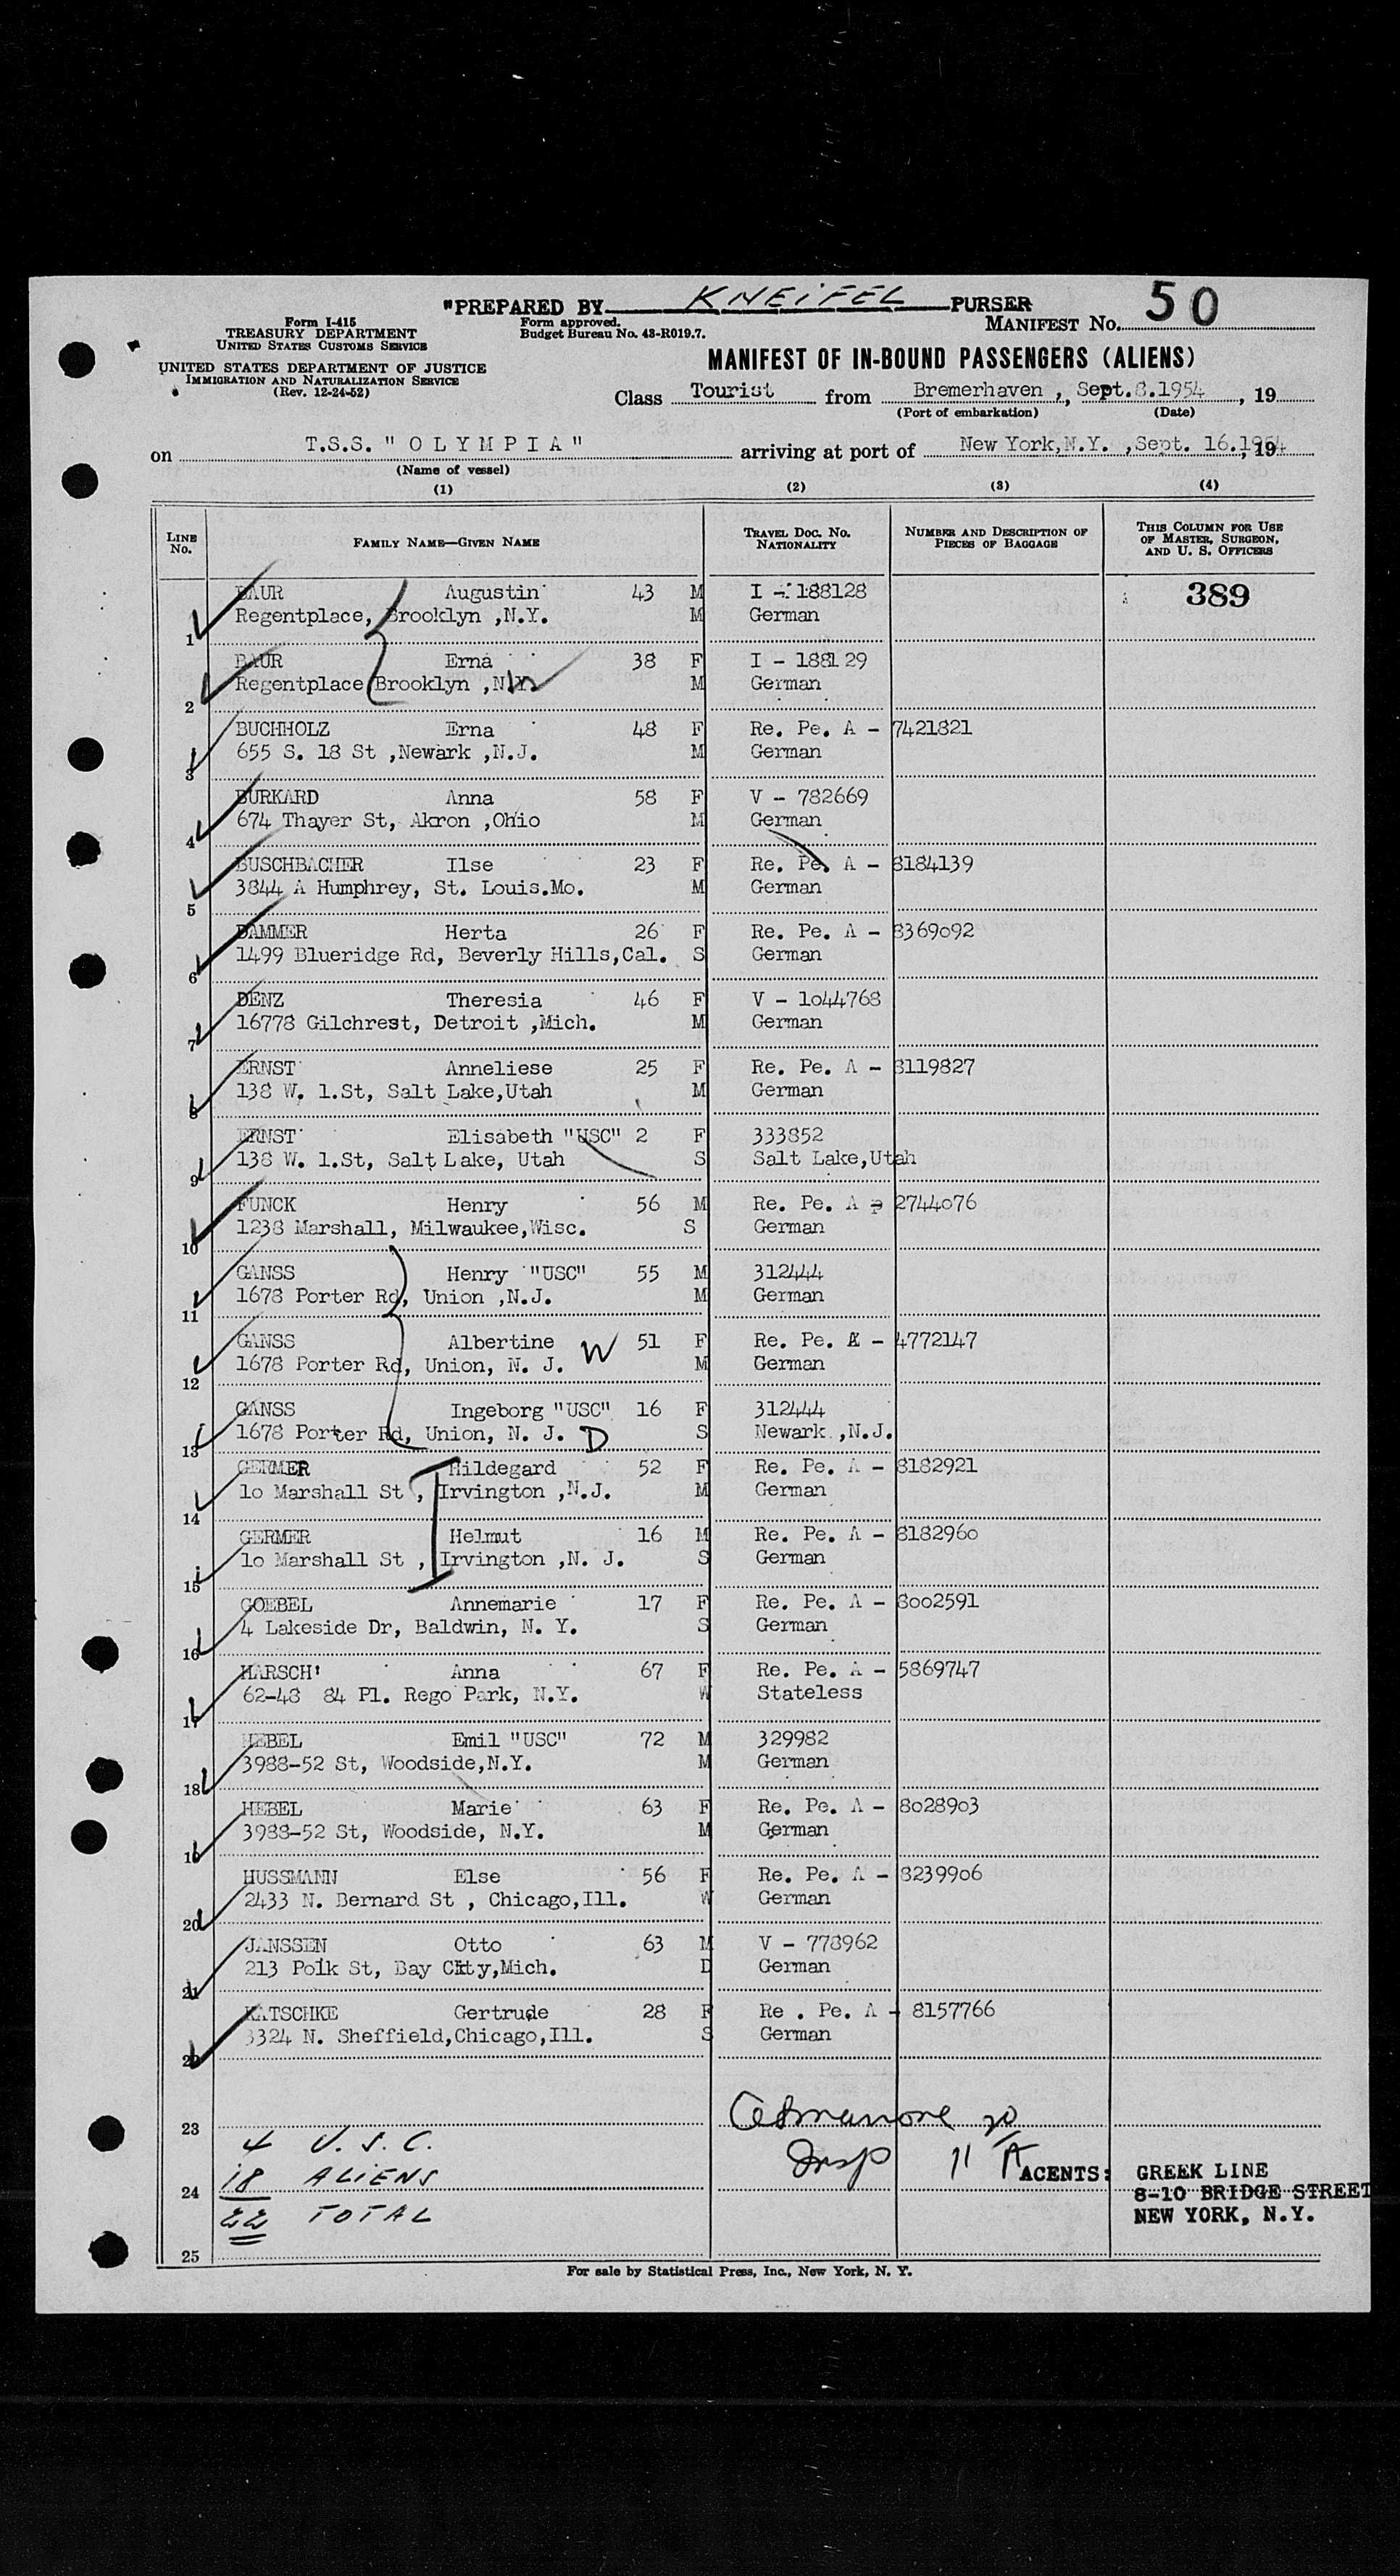 "PREPARED BY KNEIFEL PURSER
Form I-415
TREASURY DEPARTMENT
UNITED STATES CUSTOMS SERVICE
Form approved.
Budget Bureau No. 43-R019.7.
MANIFEST NO. 50
UNITED STATES DEPARTMENT OF JUSTICE
IMMIGRATION AND NATURALIZATION SERVICE
(Rev. 12-24-52)
MANIFEST OF IN-BOUND PASSENGERS (ALIENS)
Class Tourist from Bremerhaven , , Sept.8.1954 , 19
(Port of embarkation) (Date)
on T.S.S. " O L Y M P I A " arriving at port of New York,N.Y. ,Sept. 16.1954 , 19
(Name of vessel)
(1) (2) (3) (4)
LINE NO. FAMILY NAME—GIVEN NAME TRAVEL DOC. NO. NATIONALITY NUMBER AND DESCRIPTION OF PIECES OF BAGGAGE THIS COLUMN FOR USE OF MASTER, SURGEON, AND U. S. OFFICERS
BAUR Augustin 43 M I - 188128 389
1 Regentplace, Brooklyn ,N.Y. M German
BAUR Erna 38 F I - 188129
2 Regentplace Brooklyn ,N.Y. W M German
BUCHHOLZ Erna 48 F Re. Pe. A - 7421821
3 655 S. 18 St ,Newark ,N.J. M German
BURKARD Anna 58 F V - 782669
4 674 Thayer St, Akron ,Ohio M German
BUSCHBACHER Ilse 23 F Re. Pe. A - 8184139
5 3844 A Humphrey, St. Louis.Mo. M German
DAMMER Herta 26 F Re. Pe. A - 8369092
6 1499 Blueridge Rd, Beverly Hills,Cal. S German
DENZ Theresia 46 F V - 1044768
7 16778 Gilchrest, Detroit ,Mich. M German
ERNST Anneliese 25 F Re. Pe. A - 8119827
8 138 W. 1.St, Salt Lake,Utah M German
ERNST Elisabeth "USC" 2 F 333852
9 138 W. 1.St, Salt Lake, Utah S Salt Lake,Utah
FUNCK Henry 56 M Re. Pe. A - 2744076
10 1238 Marshall, Milwaukee,Wisc. S German
GANSS Henry "USC" 55 M 312444
11 1678 Porter Rd, Union ,N.J. M German
GANSS Albertine 51 F Re. Pe. A - 4772147
12 1678 Porter Rd, Union, N. J. W M German
GANSS Ingeborg "USC" 16 F 312444
13 1678 Porter Rd, Union, N. J. D S Newark ,N.J.
GERMER Hildegard 52 F Re. Pe. A - 8182921
14 10 Marshall St , Irvington ,N.J. M German
GERMER Helmut 16 M Re. Pe. A - 8182960
15 10 Marshall St , Irvington ,N. J. S German
GOEBEL Annemarie 17 F Re. Pe. A - 8002591
16 4 Lakeside Dr, Baldwin, N. Y. S German
HARSCH Anna 67 F Re. Pe. A - 5869747
17 62-48 84 Pl. Rego Park, N.Y. W Stateless
HEBEL Emil "USC" 72 M 329982
18 3988-52 St, Woodside,N.Y. M German
HEBEL Marie 63 F Re. Pe. A - 8028903
19 3988-52 St, Woodside, N.Y. M German
HUSSMANN Else 56 F Re. Pe. A - 8239906
20 2433 N. Bernard St , Chicago,Ill. W German
JANSSEN Otto 63 M V - 778962
21 213 Polk St, Bay City,Mich. D German
KATSCHKE Gertrude 28 F Re . Pe. A - 8157766
22 3324 N. Sheffield,Chicago,Ill. S German
23
4 U. S. C.
Insp
18 ALIENS
24
22 TOTAL
25
AGENTS: GREEK LINE
8-10 BRIDGE STREET
NEW YORK, N.Y.
For sale by Statistical Press, Inc., New York, N. Y.